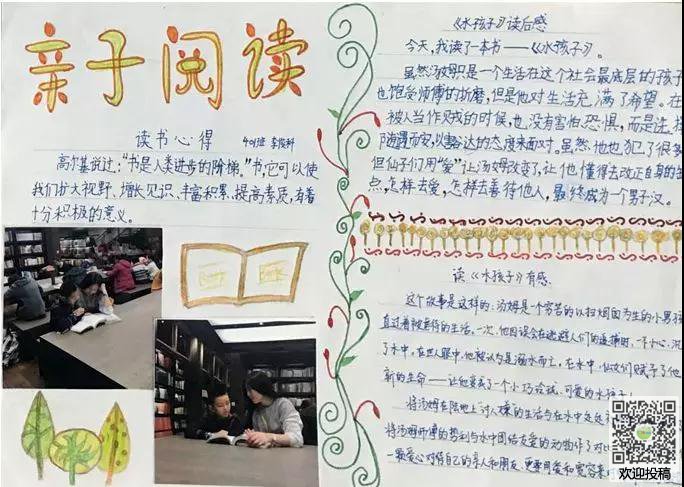 亲子阅读
读书心得
401班
高尔基说过："书是人类进步的阶梯。"书,它可以使
我们扩大视野、增长见识、丰富积累、提高素质,有着
十分积极的意义。
Book
Book
《水孩子》读后感
今天,我读了一本书——《水孩子》。
虽然汤姆只是一个生活在这个社会最底层的孩子
也饱受师傅的折磨,但是他对生活充满了希望。在
被人当作贼的时候,也没有害怕恐惧,而是选择
随遇而安,以豁达的态度来面对。虽然他也犯了很多
但仙子们用"爱"让汤姆改变了,让他懂得去改正自身的
点,怎样去爱,怎样去善待他人,最终成为一个男子汉。
读《水孩子》有感
这个故事是这样的:汤姆是一个穷苦的以扫烟囱为生的小男孩
直过着被虐待的生活。一次,他因误会在逃避人们的追捕时,一不小心,沉
了水中,在世人眼中,他被认为是溺水而亡,在水中,仙女们赋予了他
新的生命——让他变成了一个小巧玲珑、可爱的水孩子!
将汤姆在陆地上讨人嫌的生活与在水中
将汤姆师傅的势利与水中团结友爱的动物作了对比
一颗爱心对待自己的亲人和朋友,更要用爱和宽容来
欢迎投稿